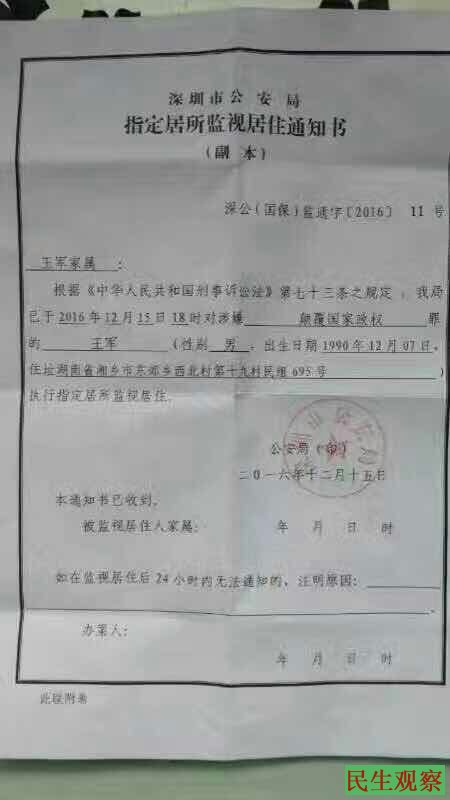 深圳市公安局
指定居所监视居住通知书
(副本)
深公(国保)监通字〔2016〕 11 号
王军家属 :
根据《中华人民共和国刑事诉讼法》第七十三条之规定,我局
已于 2016 年 12 月 15 日 18 时对涉嫌 颠覆国家政权 罪
的 王军 (性别 男 ,出生日期 1990 年 12 月 07 日,
住址湖南省湘乡市东郊乡西北村第十九村民组 695 号 )
执行指定居所监视居住.
公安局(印)
二0一六年十二月十五日
本通知书已收到.
被监视居住人家属: 年 月 日 时
如在监视居住后 24 小时内无法通知的、注明原因:
办案人:
年 月 日 时
此联附卷
民生观察